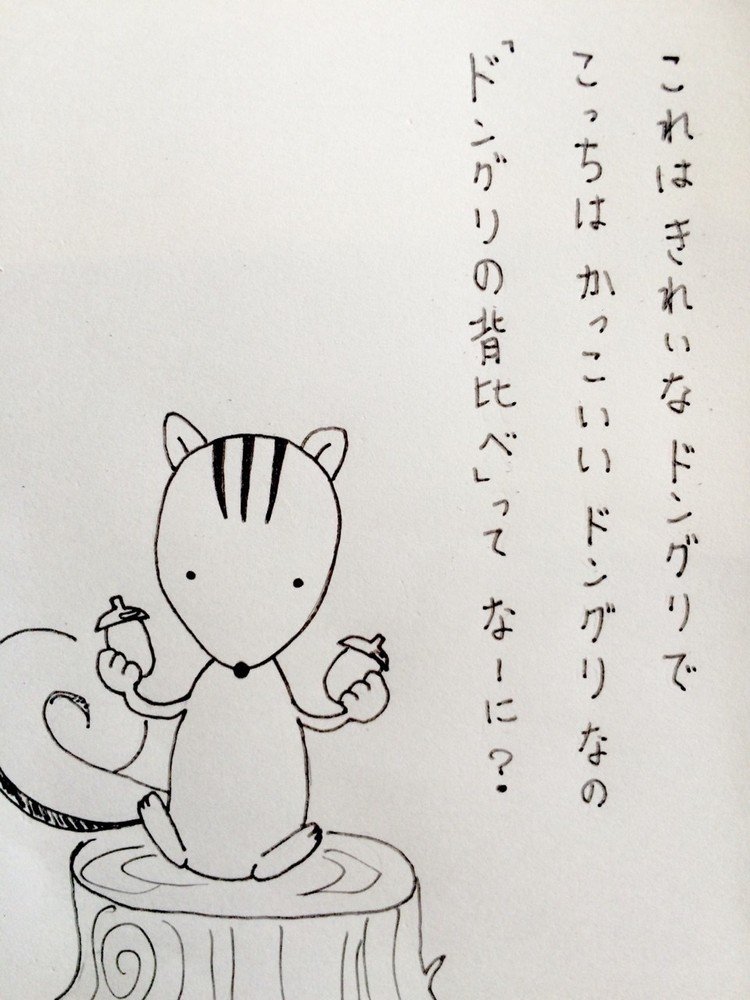 これは きれいな ドングリで
こっちは かっこいい ドングリ なの
「ドングリの背比べ」って なーに?